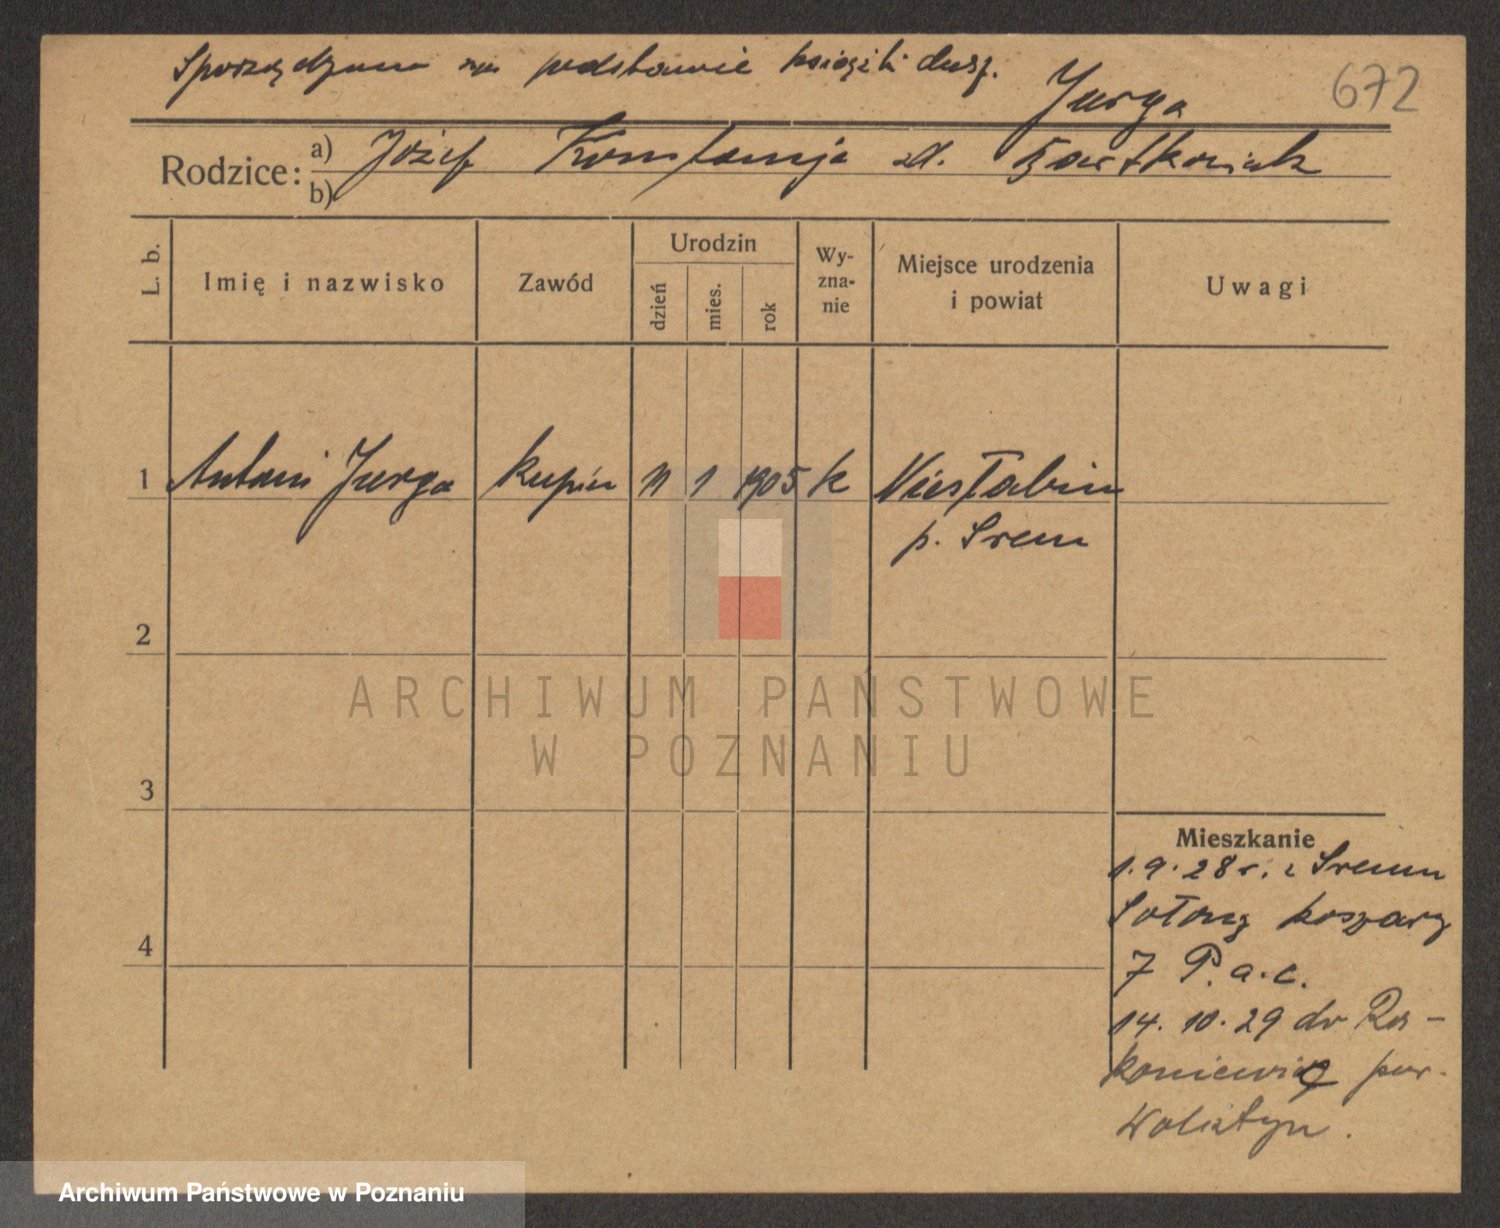 Sporządzono na podstawie książki dusz.
Jurga
672
Rodzice: a) Józef Konstancja zd. Bartkowiak
b)
L. b.
Imię i nazwisko
Zawód
Urodzin
dzień
mies.
rok
Wy-
zna-
nie
Miejsce urodzenia
i powiat
Uwagi
1 Antoni Jurga kupiec 11 1 1905 k Niesłabin
p. Srem
2
3
4
Mieszkanie
1.9.28 r. z Sremu
Sołacz koszary
7 P.a.c.
14.10.29 do Ra-
koniewic pow.
Wolsztyn.
ARCHIWUM PAŃSTWOWE
W POZNANIU
Archiwum Państwowe w Poznaniu